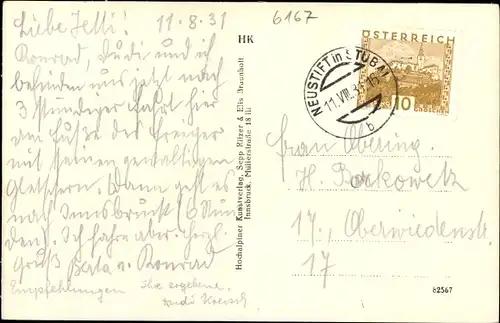 Liebe Jetti! 11.8.31
Konrad, Dudi und ich
befinden uns jetzt nach
3 stündiger Fahrt hier
am Fuße des
mit seinen gewaltigen
Gletschern. Dann geht es
nach Innsbruck (3 Stun
den). Ich fahre aber. Herzl.
Gruß Berta u. Konrad
Empfehlungen Ihr ergebene
6167
HK
Hochalpiner Kunstverlag, Sepp Ritzer & Elis Braunhoff
Innsbruck, Müllerstraße 18 III
ÖSTERREICH
10
GROSCHEN
NEUSTIFT in STUBAI
11.VIII.31-16
b
Frau Obering.
H.
17., Oberwiedenstr.
17
82567